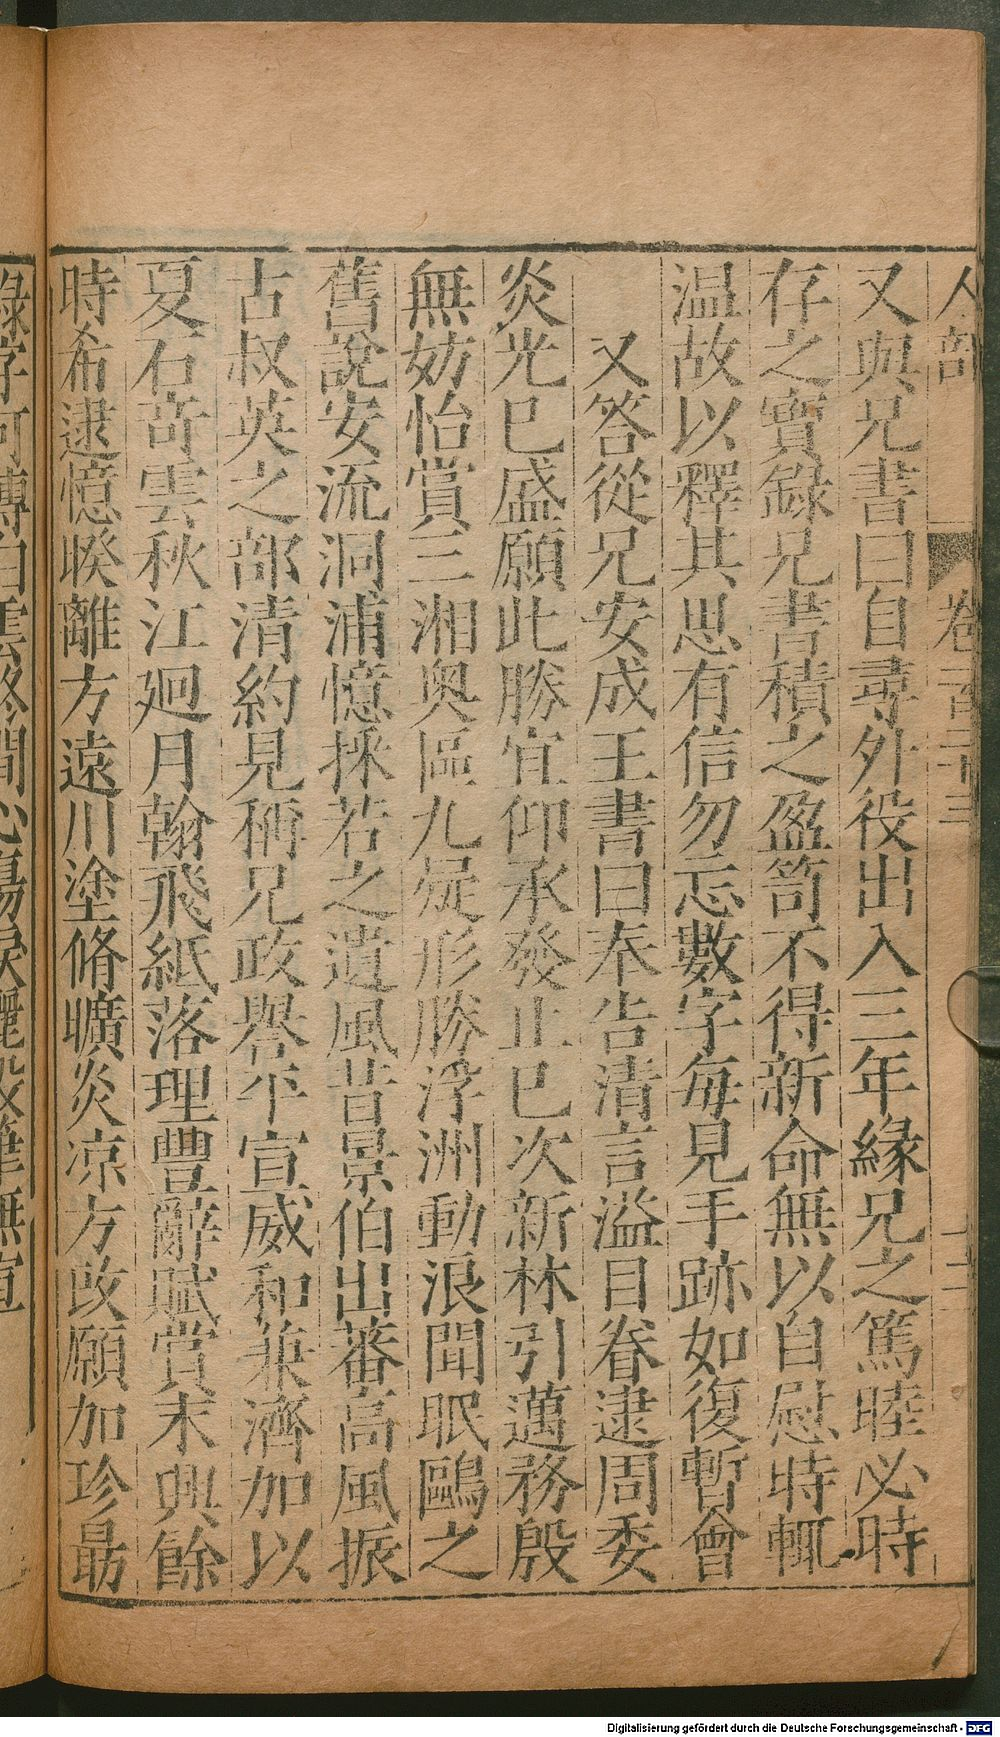 人部 卷一百二十三
又與兄書曰自尋外役出入三年緣兄之篤睦必時
存之實錄兄書積之盈笥不得新命無以自慰時輒
温故以釋其思有信勿忘數字每見手跡如復暫會
又答從兄安成王書曰奉告清言溢目眷逮周委
炎光已盛願此勝宜仰承發止已次新林引邁務殷
無妨怡賞三湘奥區九疑形勝浮洲動浪聞眠鷗之
舊說安流洞浦憶採若之遺風昔景伯出蕃高風振
古叔英之部清約見稱兄政舉平宣威和兼濟加以
夏石奇雲秋江廻月翰飛紙落理豐辭賦賞末興餘
時希逮憶睽離方遠川塗脩曠炎凉方改願加珍勗
Digitalisierung gefördert durch die Deutsche Forschungsgemeinschaft - DFG